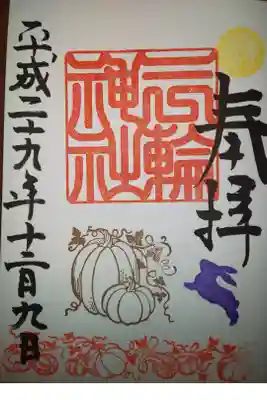 奉拝
三輪
神社
平成二十九年十二月九日